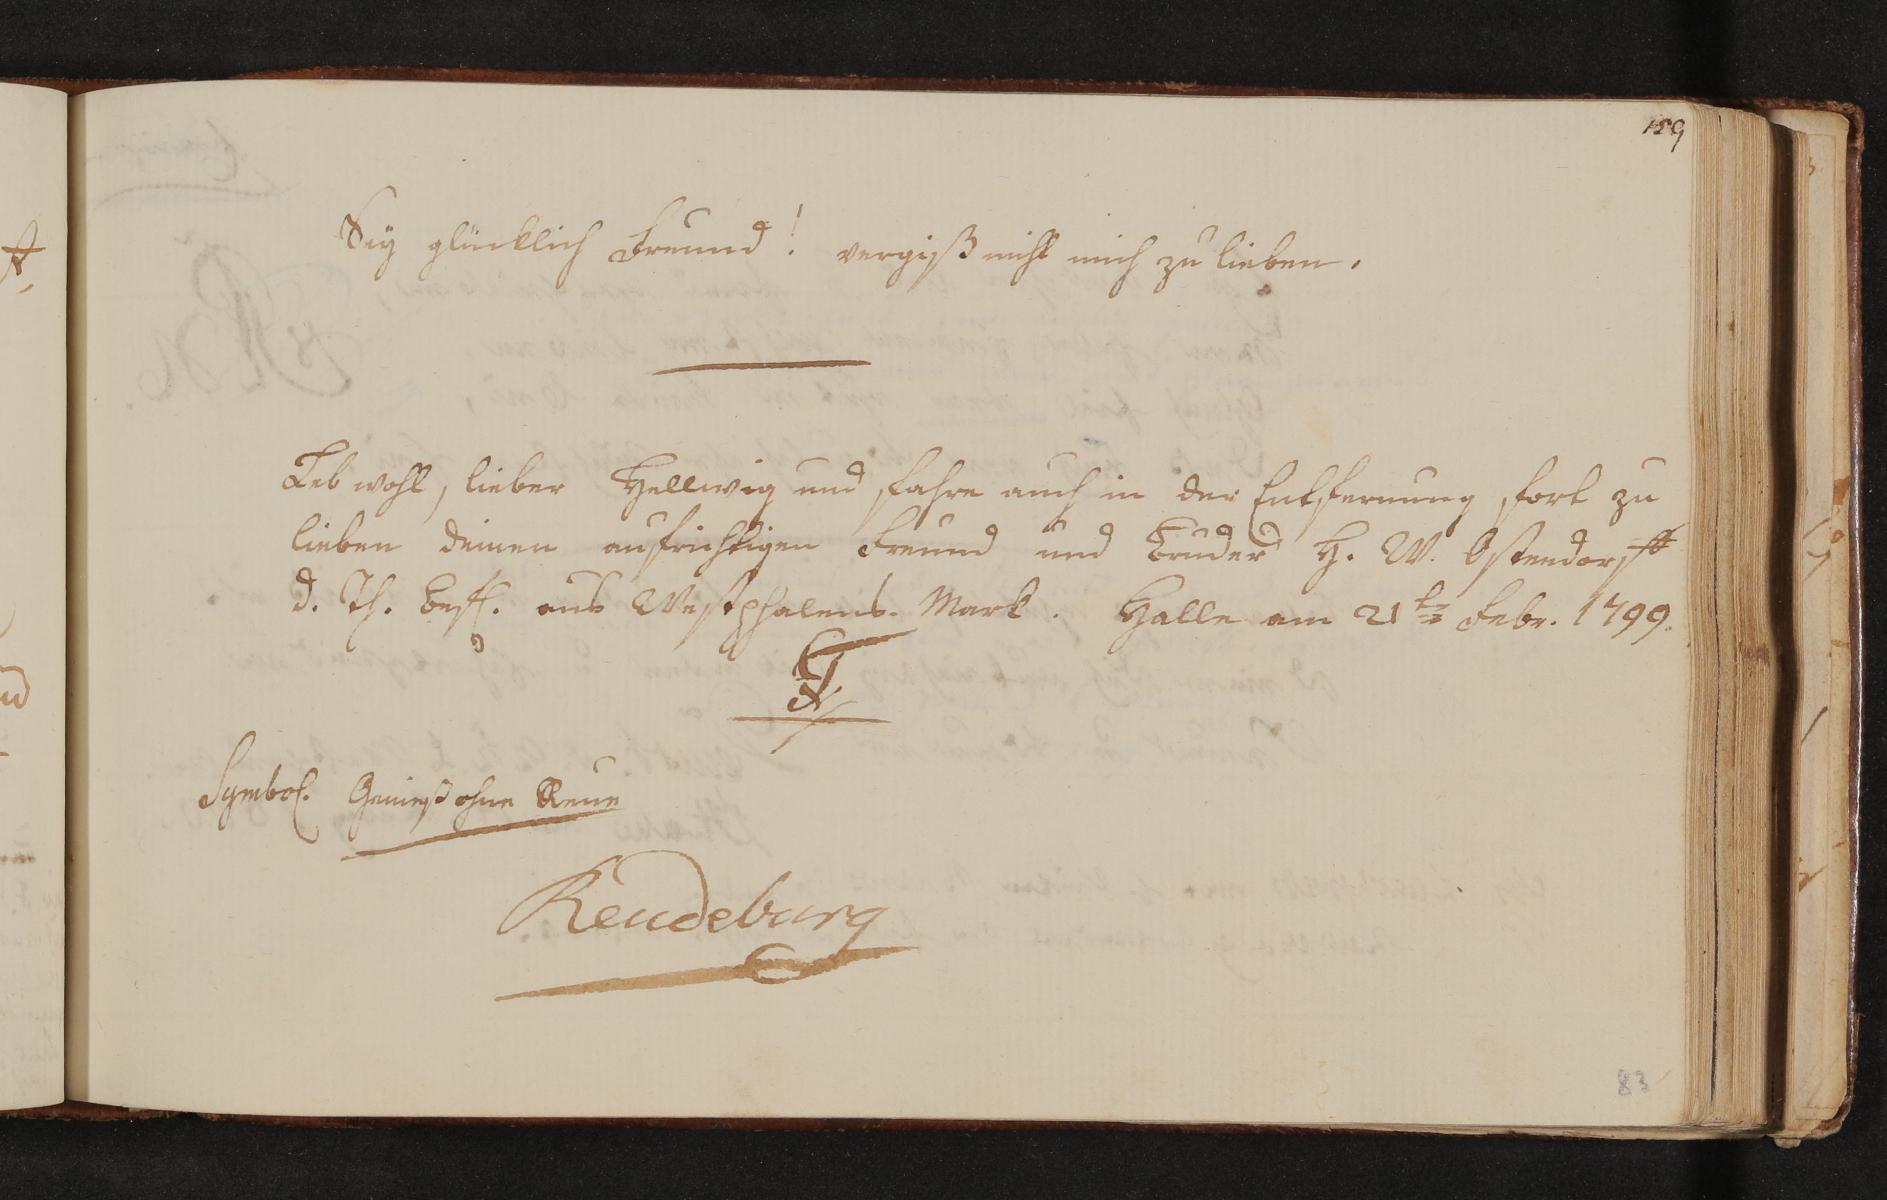 159
Sey glücklich Freund! vergiß nicht mich zu lieben.
Leb wohl, lieber Hellwig und fahre auch in der Entfernung fort zu
lieben deinen aufrichtigen Freund und Bruder H. W. Ostendorff
d. Th. Befl. aus Westphalens. Mark. Halle am 21ten Febr. 1799.
Symbol. Genieß ohne Reue
Reudeburg
83